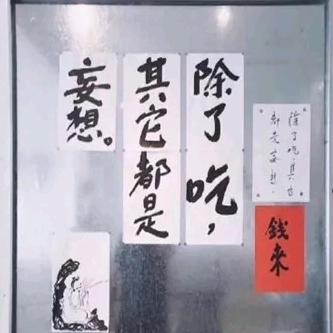 除了吃，
其它都是
妄想。
除了吃，其它
都是妄想．
钱来